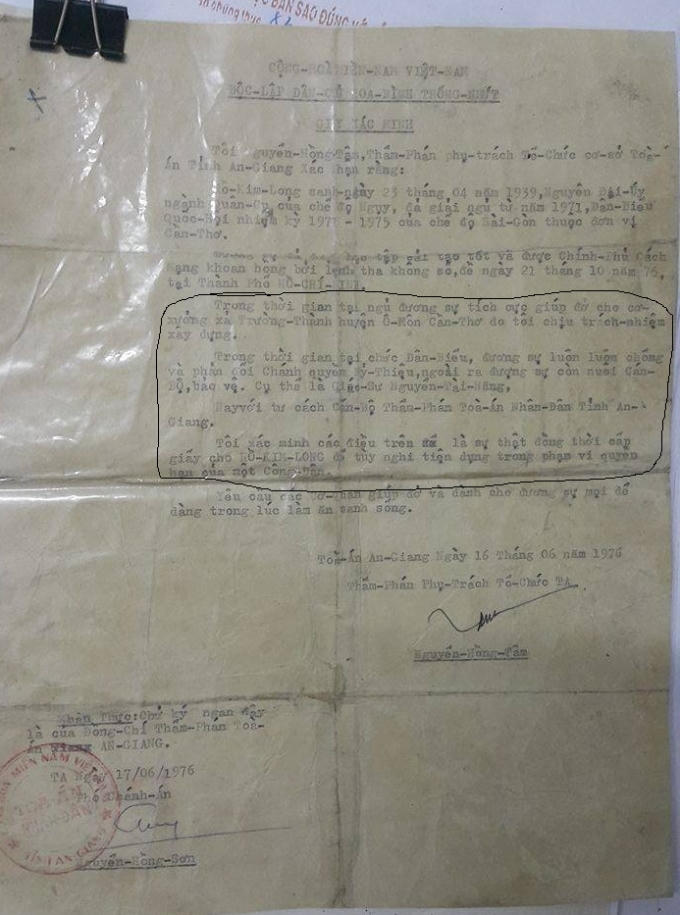 BẢN SAO ĐÚNG
CỘNG-HOÀ MIỀN-NAM VIỆT-NAM
ĐỘC-LẬP DÂN-CHỦ HOA-BÌNH THỐNG-NHẤT
GIẤY XÁC MINH
Tôi Nguyễn-Hồng-Tâm,Thẩm-Phán phụ-trách Tổ-Chức cơ-sở Toà-
Án Tỉnh An-Giang Xác nhận rằng:
Hồ-Kim-Long sanh ngày 23 tháng 04 năm 1939,Nguyên Đại-Úy
ngành Quân-Cụ của chế độ Ngụy, đã giải ngũ từ năm 1971,Dân-Biểu
Quốc-Hội nhiệm kỳ 1971 - 1975 của chế độ Sài-Gòn thuộc đơn vị
Cần-Thơ.
Đương sự đã học tập cải tạo tốt và được Chính-Phủ Cách
Mạng khoan hồng bởi lệnh tha không số,đề ngày 21 tháng 10 năm 76,
tại Thành Phố HỒ-CHÍ-MINH.
Trong thời gian tại ngũ đương sự tích cực giúp đở cho cơ-
xưởng xả Trường-Thành huyện Ô-Môn Cần-Thơ do tôi chịu trách-nhiệm
xây dựng.
Trong thời gian tại chức Dân-Biểu, đương sự luôn luôn chống
và phản đối Chánh quyền Mỹ-Thiệu,ngoài ra đương sự còn nuôi Cán-
Bộ,bảo vệ. Cụ thể là Giáo-Sư Nguyễn-Tài-Năng,
Nay với tư cách Cán-Bộ Thẩm-Phán Toà-Án Nhân-Dân Tỉnh An-
Giang.
Tôi xác minh các điều trên là sự thật đồng thời cấp
giấy cho HỒ-KIM-LONG để tùy nghi tiện dụng trong phạm vi quyền
hạn của một Công-Dân.
Yêu cầu các Cơ-Quan giúp đở và dành cho đương sự mọi dể
dàng trong lúc làm ăn sanh sống.
Toà-Án An-Giang Ngày 16 Tháng 06 năm 1976
Thẩm-Phán Phụ-Trách Tổ-Chức TA
Nguyễn-Hồng-Tâm
Nhận Thực:Chử ký ngan đây
là của Đồng-Chí Thẩm-Phán Toà-
Án AN-GIANG.
TA Ngày 17/06/1976
Phó Chánh-Án
Nguyễn-Hồng-Sơn
MIỀN NAM VIỆT
TOÀ ÁN
NHÂN DÂN
TỈNH AN GIANG